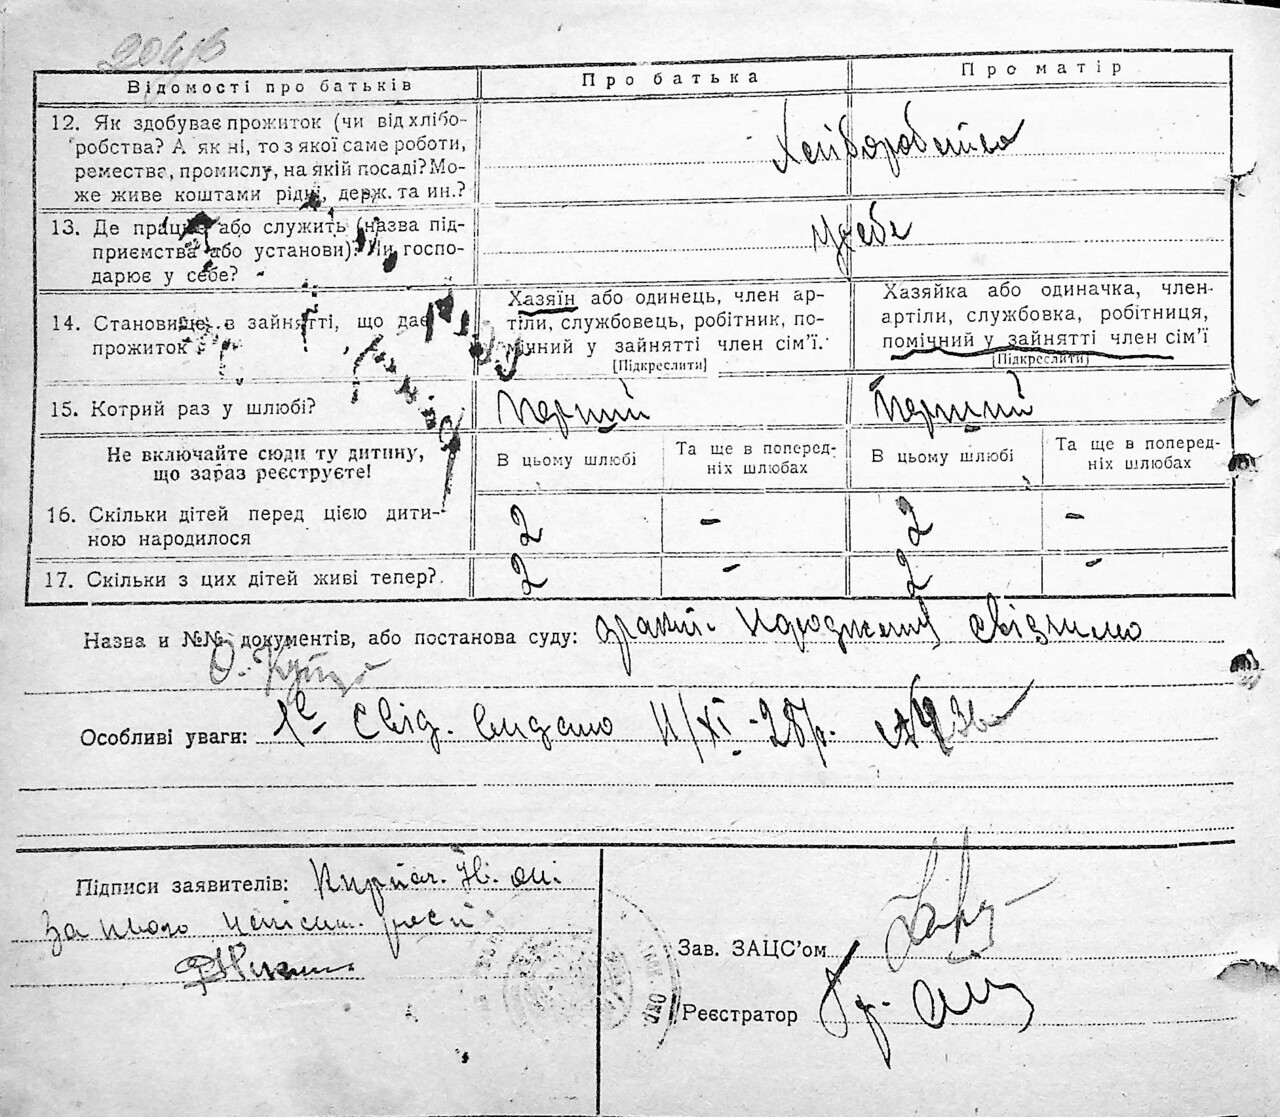 Відомості про батьків
Про батька
Про матір
12. Як здобуває прожиток (чи від хлібо-
робства? А як ні, то з якої саме роботи,
ремества, промислу, на якій посаді? Мо-
же живе коштами рідні, держ. та ин.?
Хліборобство
13. Де працює або служить (назва під-
приємства або установи)? Чи госпо-
дарює у себе?
у себе
14. Становище в зайнятті, що дає
прожиток
Хазяїн або одинець, член ар-
тіли, службовець, робітник, по-
мічний у зайнятті член сім’ї.
[Підкреслити]
Хазяйка або одиначка, член-
артіли, службовка, робітниця,
помічний у зайнятті член сім’ї
[Підкреслити]
15. Котрий раз у шлюбі?
Перший
Перший
Не включайте сюди ту дитину,
що зараз реєструєте!
В цьому шлюбі
Та ще в поперед-
ніх шлюбах
В цьому шлюбі
Та ще в поперед-
ніх шлюбах
16. Скільки дітей перед цією дити-
ною народилося
2 - 2 -
17. Скільки з цих дітей живі тепер?
2 - 2 -
Назва и №№ документів, або постанова суду:
Особливі уваги: свід. видано 11/XI-28р. №
Підписи заявителів:
За нього
Зав. ЗАЦС’ом
Реєстратор